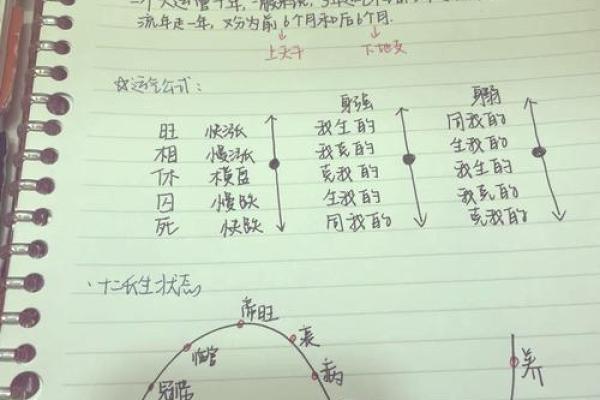 流年走一年，又分为前6个月和后6个月.
上天干 下地支
运气公式：
身强 身弱
旺 快涨 我生的 同我的
相 慢涨 我克的 生我的
休 横盘 克我的 我生的
囚 慢跌 生我的 我克的
死 快跌 同我的 克我的
·十二长生状态
帝旺
临官 衰
冠带 病 养